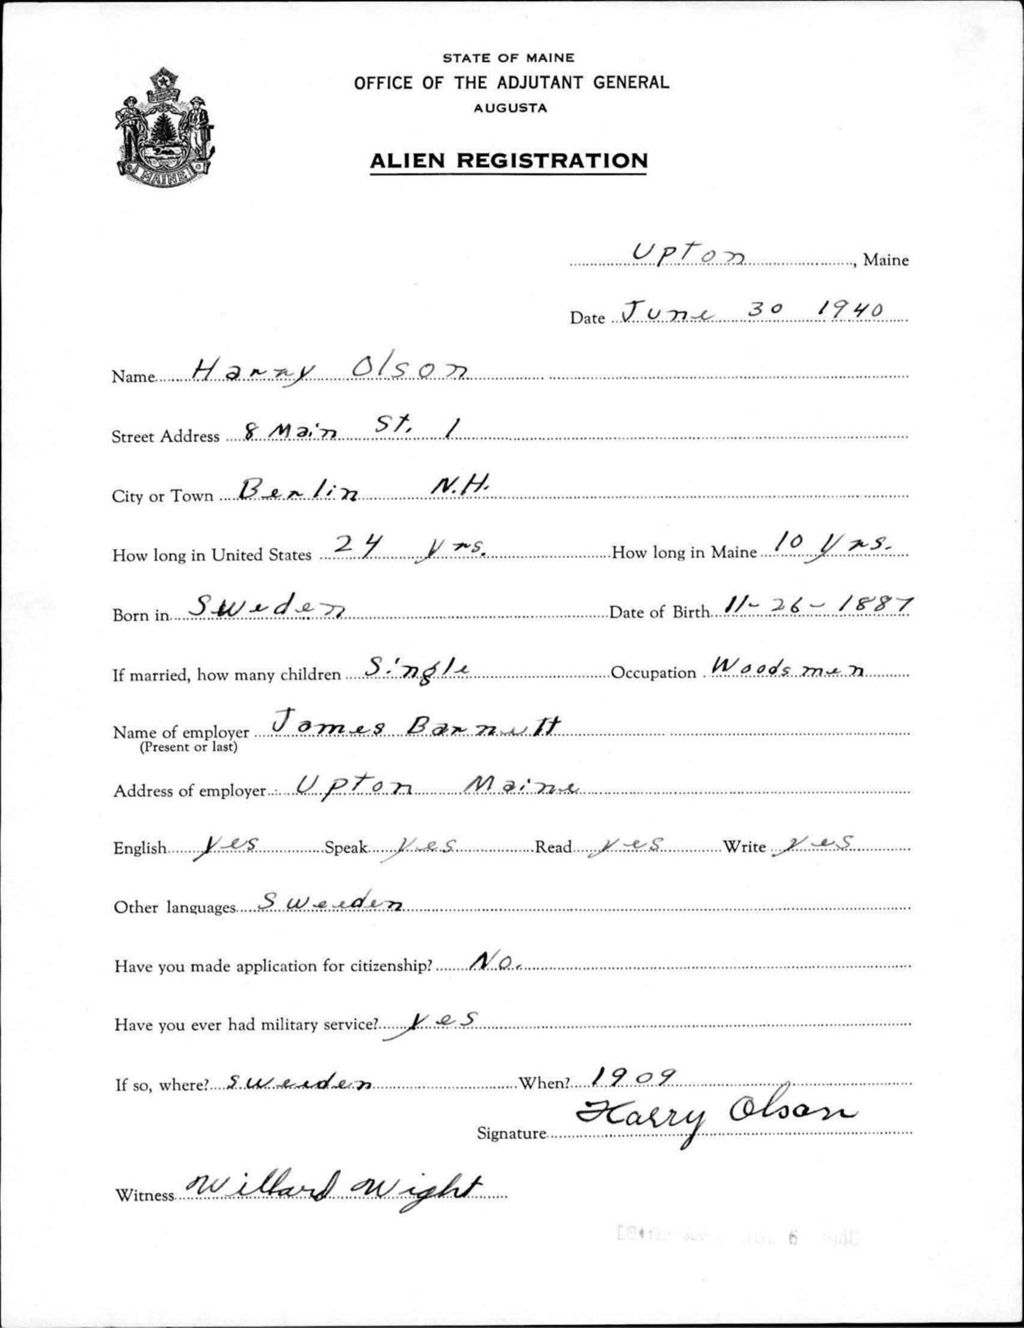 STATE OF MAINE
OFFICE OF THE ADJUTANT GENERAL
AUGUSTA
MAINE
ALIEN REGISTRATION
Upton, Maine
Date June 30 1940
Name Harry Olson
Street Address 8 Main St. 1
City or Town Berlin N.H.
How long in United States 24 yrs. How long in Maine 10 yrs.
Born in Sweden Date of Birth 11-26-1887
If married, how many children Single Occupation Woodsmen
Name of employer James Barnett
(Present or last)
Address of employer Upton Maine
English yes Speak yes Read yes Write yes
Other languages Sweeden
Have you made application for citizenship? No.
Have you ever had military service? yes
If so, where? Sweeden When? 1909
Signature Harry Olson
Witness Willard Wight